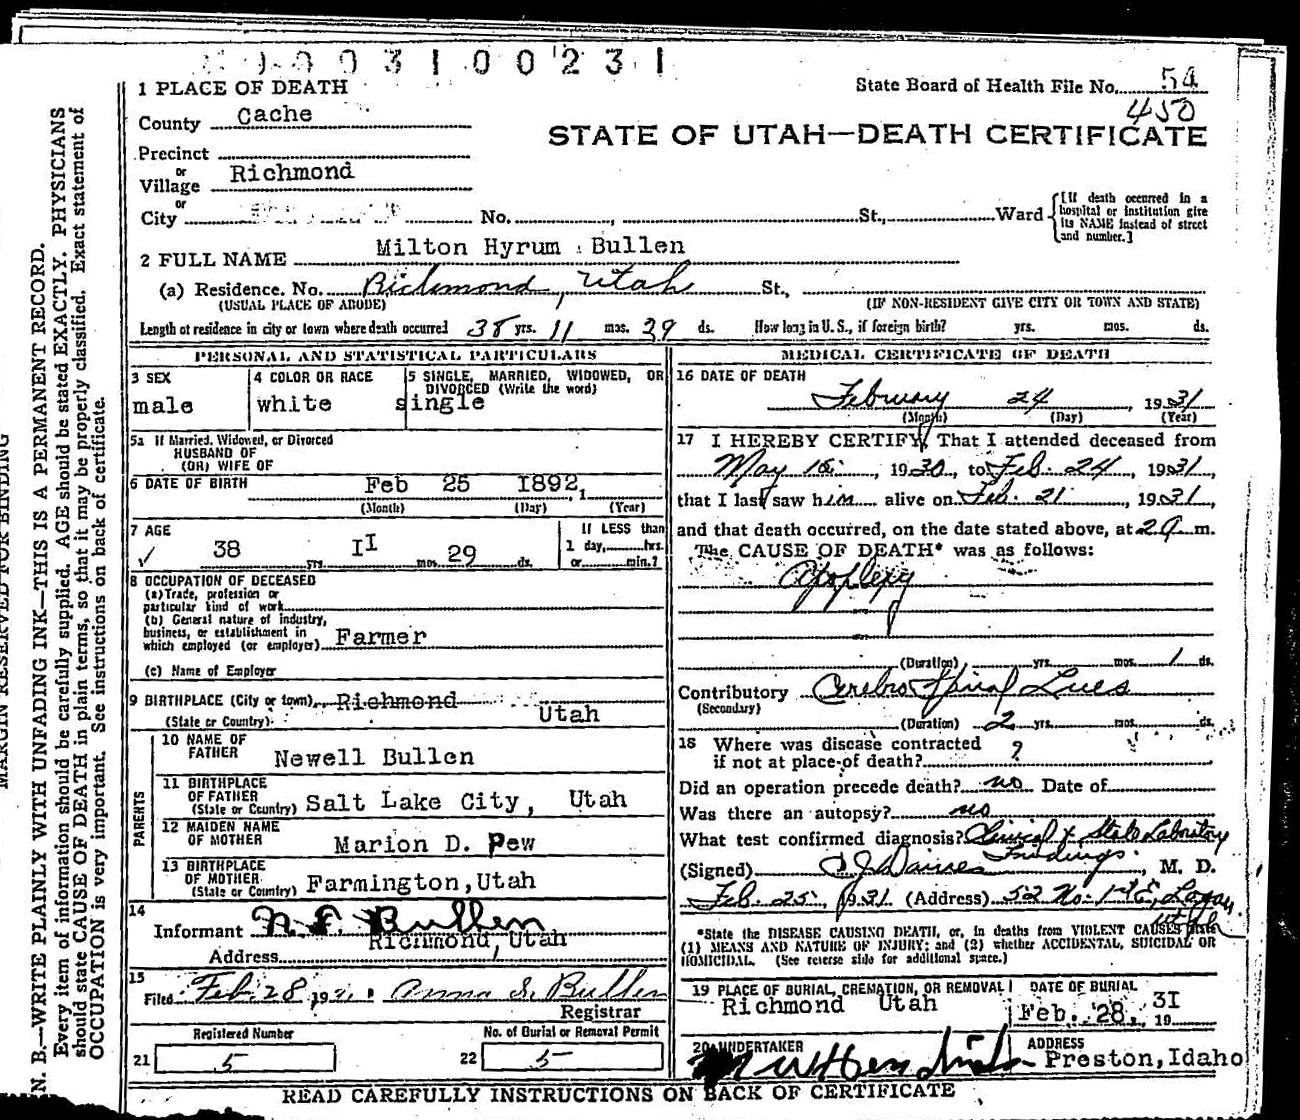 0 0 3 1 0 0 2 3 1
1 PLACE OF DEATH
State Board of Health File No. 54
450
County Cache
STATE OF UTAH—DEATH CERTIFICATE
Precinct
or
Village Richmond
or
City No. , St., Ward
[If death occurred in a hospital or institution give its NAME instead of street and number.]
2 FULL NAME Milton Hyrum Bullen
(a) Residence. No. Richmond, Utah St.,
(USUAL PLACE OF ABODE) (IF NON-RESIDENT GIVE CITY OR TOWN AND STATE)
Length of residence in city or town where death occurred 38 yrs. 11 mos. 29 ds. How long in U. S., if foreign birth? yrs. mos. ds.
PERSONAL AND STATISTICAL PARTICULARS
3 SEX
male
4 COLOR OR RACE
white
5 SINGLE, MARRIED, WIDOWED, OR
DIVORCED (Write the word)
single
5a If Married, Widowed, or Divorced
HUSBAND OF
(OR) WIFE OF
6 DATE OF BIRTH Feb 25 I892,
(Month) (Day) (Year)
7 AGE
38 yrs. II mos. 29 ds.
If LESS than
1 day, hrs.
or min.?
8 OCCUPATION OF DECEASED
(a) Trade, profession or
particular kind of work
(b) General nature of industry,
business, or establishment in
which employed (or employer) Farmer
(c) Name of Employer
9 BIRTHPLACE (City or town) Richmond
(State or Country) Utah
PARENTS
10 NAME OF
FATHER Newell Bullen
11 BIRTHPLACE
OF FATHER
(State or Country) Salt Lake City, Utah
12 MAIDEN NAME
OF MOTHER Marion D. Pew
13 BIRTHPLACE
OF MOTHER
(State or Country) Farmington, Utah
14
Informant N. F. Bullen
Richmond, Utah
Address
15
Filed Feb. 28, 1931. Anna S. Bullen
Registrar
Registered Number
21 5
No. of Burial or Removal Permit
22 5
MEDICAL CERTIFICATE OF DEATH
16 DATE OF DEATH
February 24, 1931
(Month) (Day) (Year)
17 I HEREBY CERTIFY, That I attended deceased from
May 15, 1930, to Feb. 24, 1931,
that I last saw him alive on Feb. 21, 1931,
and that death occurred, on the date stated above, at 2 a. m.
The CAUSE OF DEATH* was as follows:
Apoplexy
(Duration) yrs. mos. 1 ds.
Contributory Cerebro Spinal Lues
(Secondary)
(Duration) 2 yrs. mos. ds.
18 Where was disease contracted
if not at place of death? ?
Did an operation precede death? no Date of
Was there an autopsy? no
What test confirmed diagnosis? Clinical & State Laboratory
Findings.
(Signed) , M. D.
Feb. 25, 1931 (Address) 52 No. 1st E, Logan,
Utah
*State the DISEASE CAUSING DEATH, or, in deaths from VIOLENT CAUSES state
(1) MEANS AND NATURE OF INJURY; and (2) whether ACCIDENTAL, SUICIDAL OR
HOMICIDAL. (See reverse side for additional space.)
19 PLACE OF BURIAL, CREMATION, OR REMOVAL
Richmond Utah
DATE OF BURIAL
Feb. 28, 19 3I
20 UNDERTAKER
ADDRESS
Preston, Idaho
READ CAREFULLY INSTRUCTIONS ON BACK OF CERTIFICATE
MARGIN RESERVED FOR BINDING
N. B.—WRITE PLAINLY WITH UNFADING INK—THIS IS A PERMANENT RECORD.
Every item of information should be carefully supplied. AGE should be stated EXACTLY. PHYSICIANS
should state CAUSE OF DEATH in plain terms, so that it may be properly classified. Exact statement of
OCCUPATION is very important. See instructions on back of certificate.